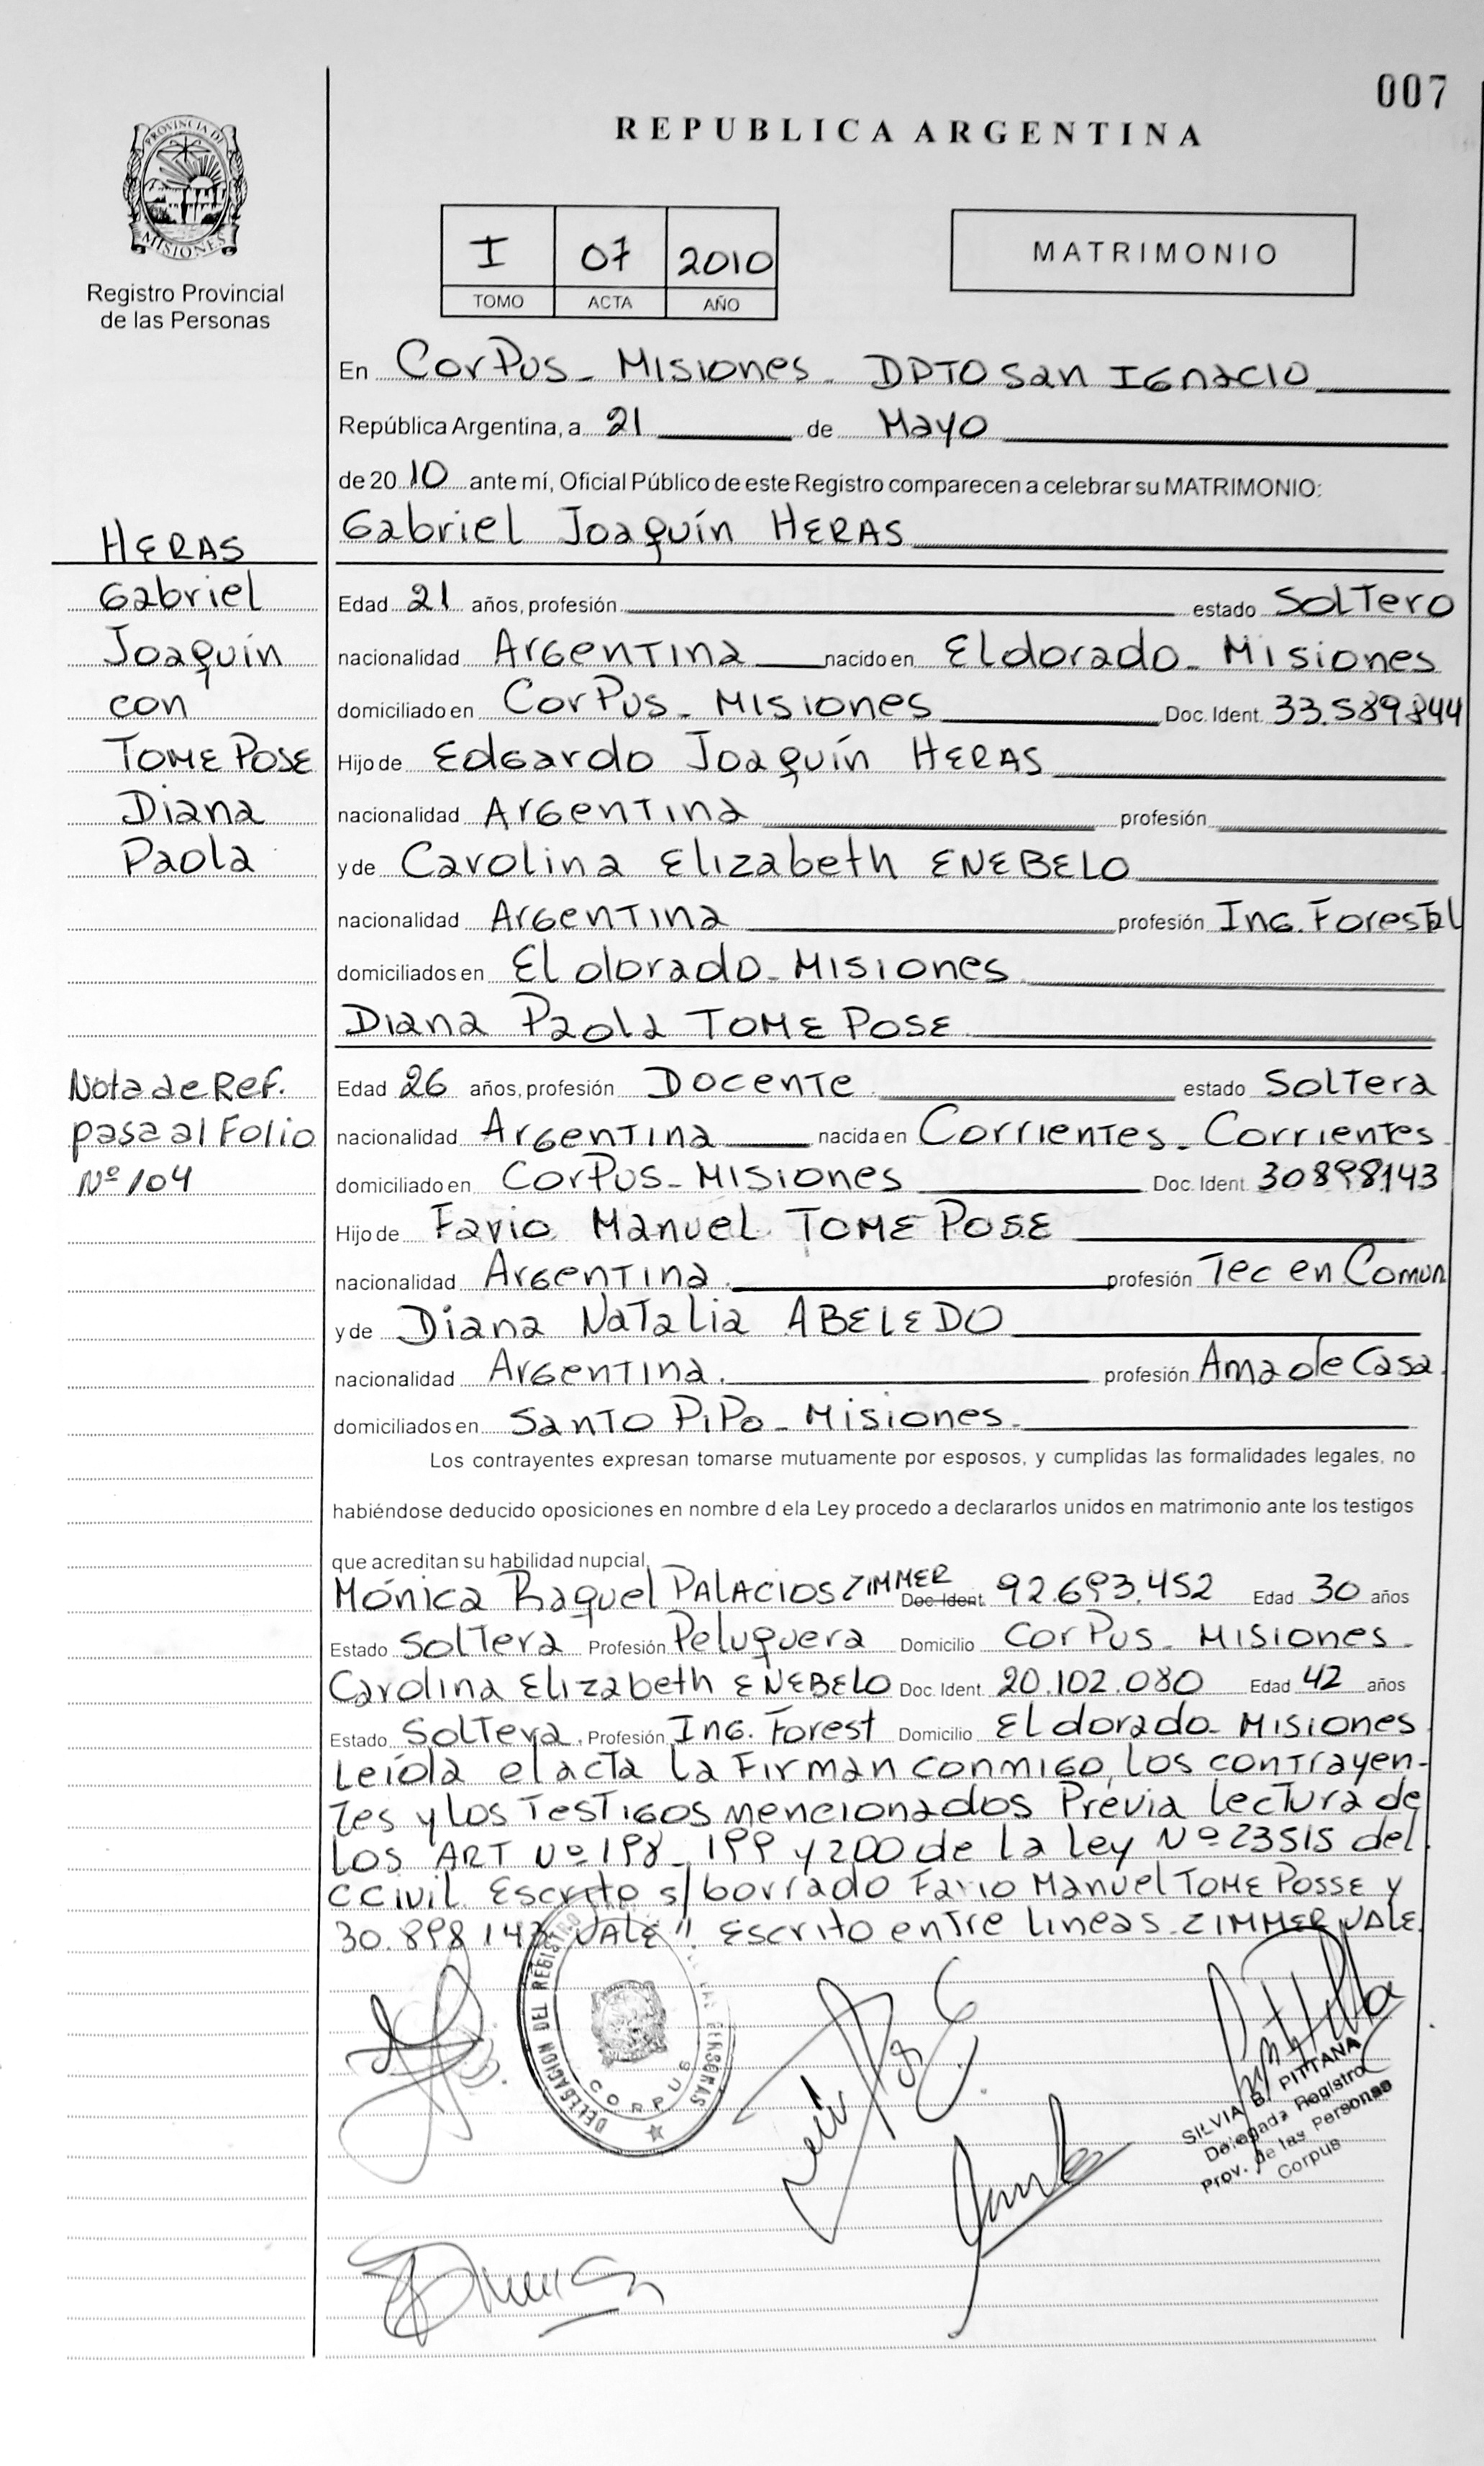 007
REPUBLICA ARGENTINA
PROVINCIA DE
MISIONES
Registro Provincial
de las Personas
I 07 2010
TOMO ACTA AÑO
MATRIMONIO
En CorPus - Misiones - DPTO San Ignacio
República Argentina, a 21 de Mayo
de 2010 ante mí, Oficial Público de este Registro comparecen a celebrar su MATRIMONIO:
Gabriel Joaquín HERAS
Edad 21 años, profesión estado Soltero
nacionalidad Argentina nacido en Eldorado - Misiones
domiciliado en CorPus - Misiones Doc. Ident. 33.589844
Hijo de Edgardo Joaquín HERAS
nacionalidad Argentina profesión
y de Carolina Elizabeth ENEBELO
nacionalidad Argentina profesión Ing. Forestal
domiciliados en Eldorado - Misiones
Diana Paola TOME POSE
Edad 26 años, profesión Docente estado Soltera
nacionalidad Argentina nacida en Corrientes - Corrientes
domiciliado en CorPus - Misiones Doc. Ident. 30898143
Hijo de Favio Manuel TOME POSE
nacionalidad Argentina. profesión Tec en Comun
y de Diana Natalia ABELEDO
nacionalidad Argentina. profesión Ama de Casa.
domiciliados en Santo PiPo - Misiones.
Los contrayentes expresan tomarse mutuamente por esposos, y cumplidas las formalidades legales, no
habiéndose deducido oposiciones en nombre d ela Ley procedo a declararlos unidos en matrimonio ante los testigos
que acreditan su habilidad nupcial.
Mónica Raquel PALACIOS ZIMMER Doc. Ident. 92.693.452 Edad 30 años
Estado Soltera Profesión Peluquera Domicilio CorPus - Misiones.
Carolina Elizabeth ENEBELO Doc. Ident. 20.102.080 Edad 42 años
Estado Soltera. Profesión Ing. Forest Domicilio Eldorado - Misiones
Leíola el acta la Firman conmigo, los contrayen-
tes y los Testigos mencionados Previa lectura de
los ART Nº 198 - 199 y 200 de la Ley Nº 23515 del
CCivil. Escrito s/ borrado Favio Manuel TOME POSSE y
30.898143 VALE". Escrito entre lineas ZIMMER VALE.
HERAS
Gabriel
Joaquín
con
TOME POSE
Diana
Paola
Nota de Ref.
pasa al Folio
Nº 104
DELEGACION DEL REGISTRO DE LAS PERSONAS
CORPUS
SILVIA B. PITTANA
Delegada Registro
Prov. de las Personas
Corpus